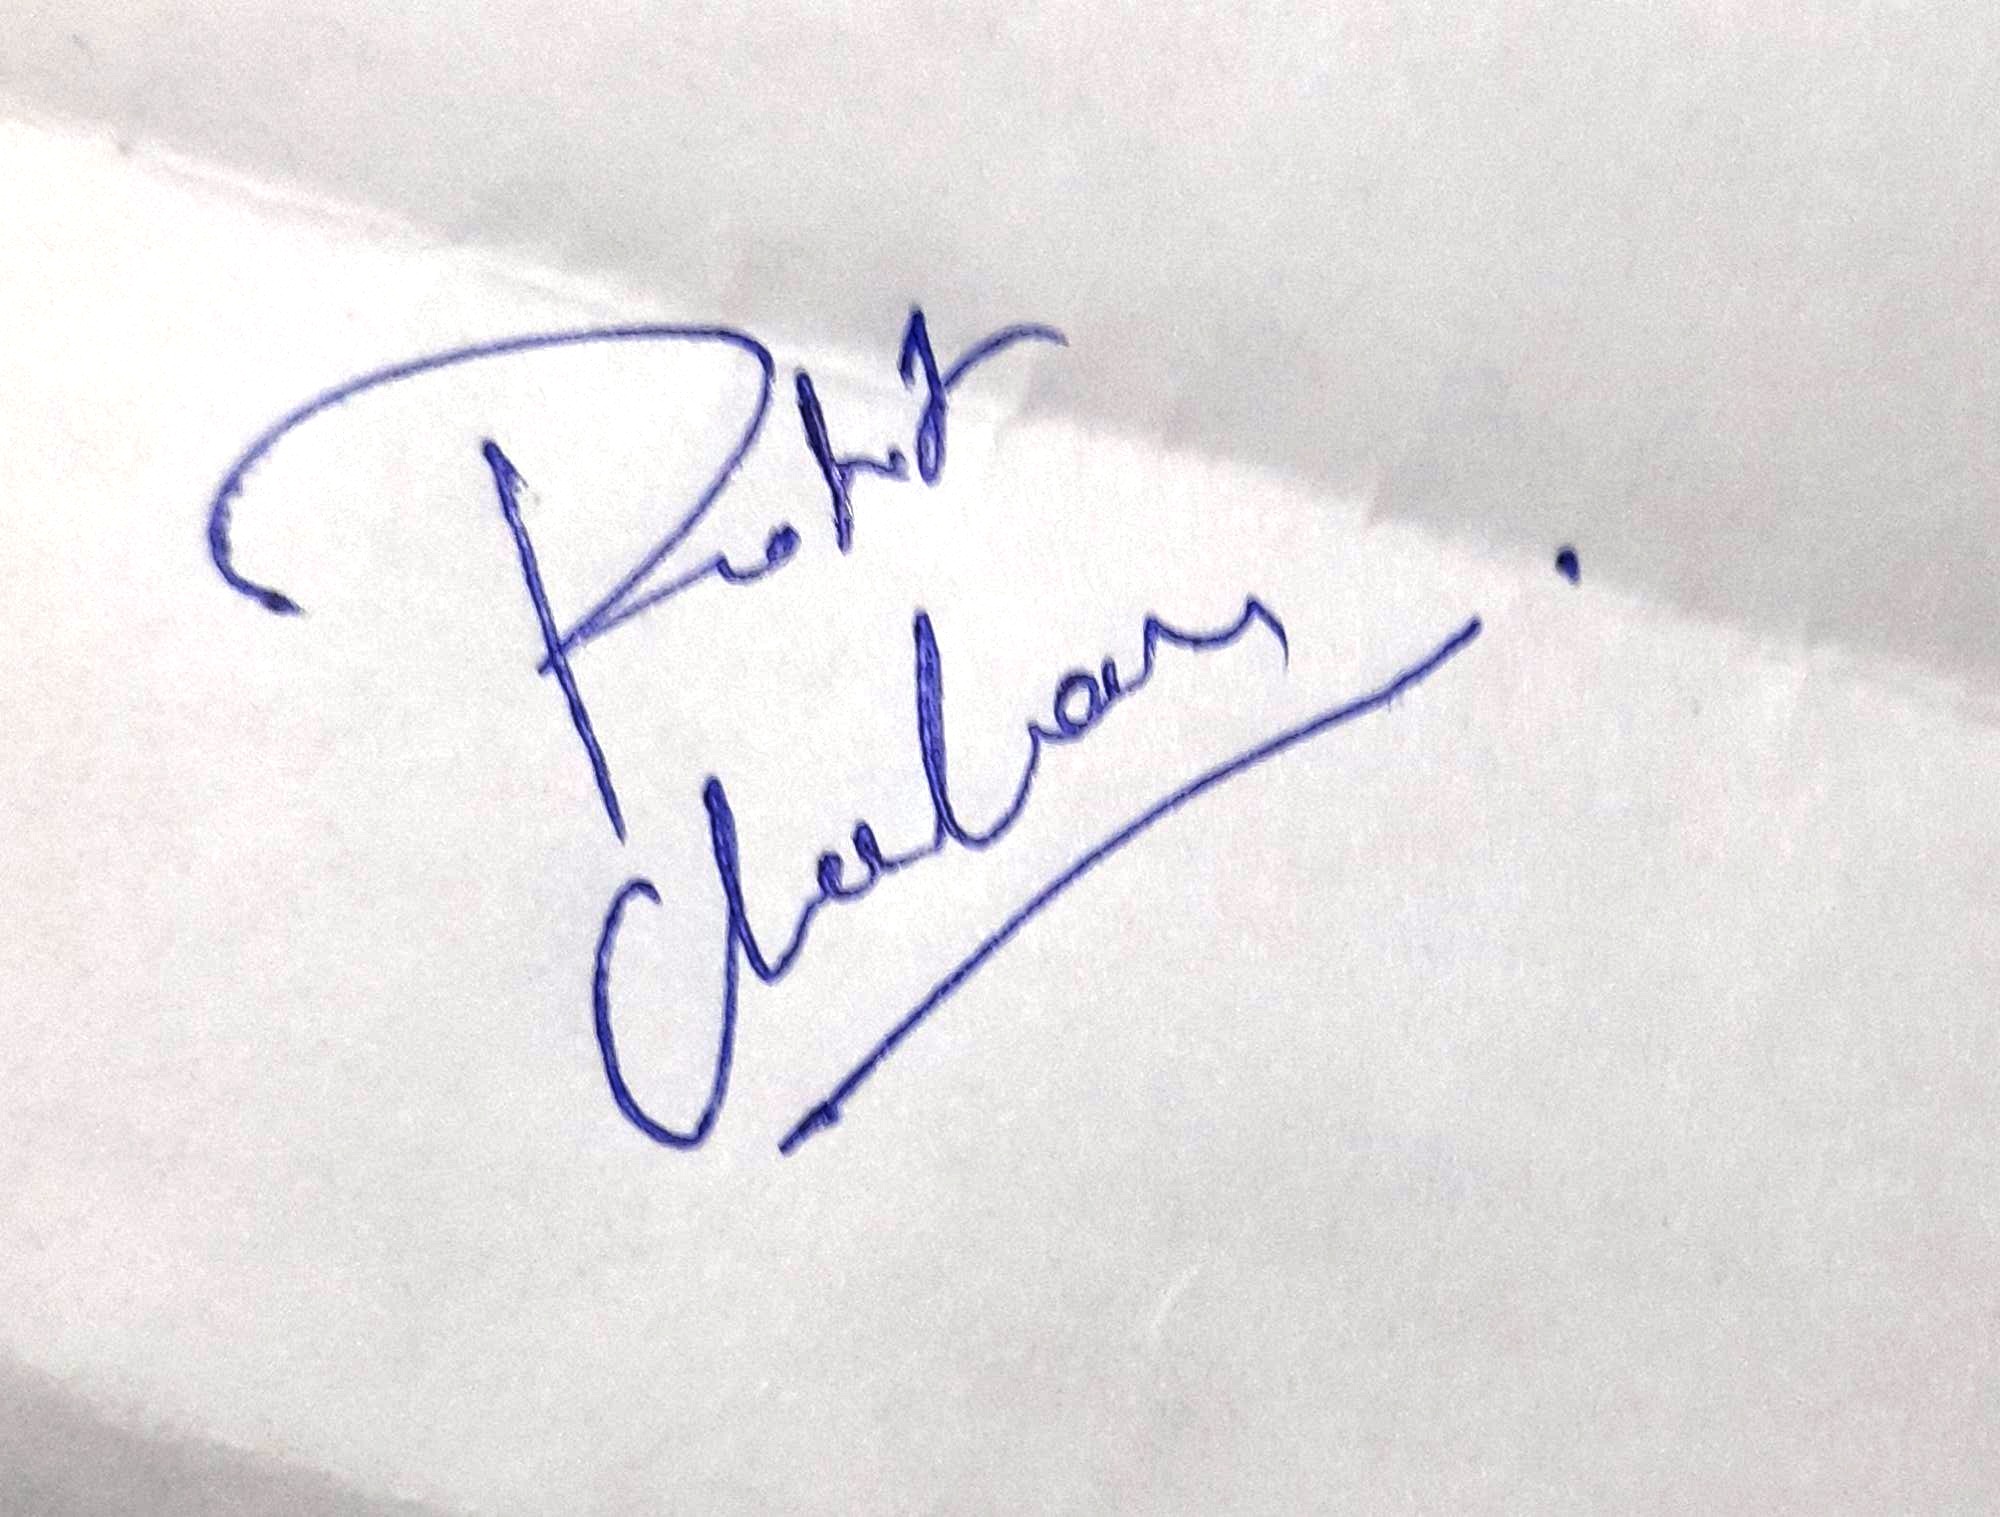 Rohit
Chauhan